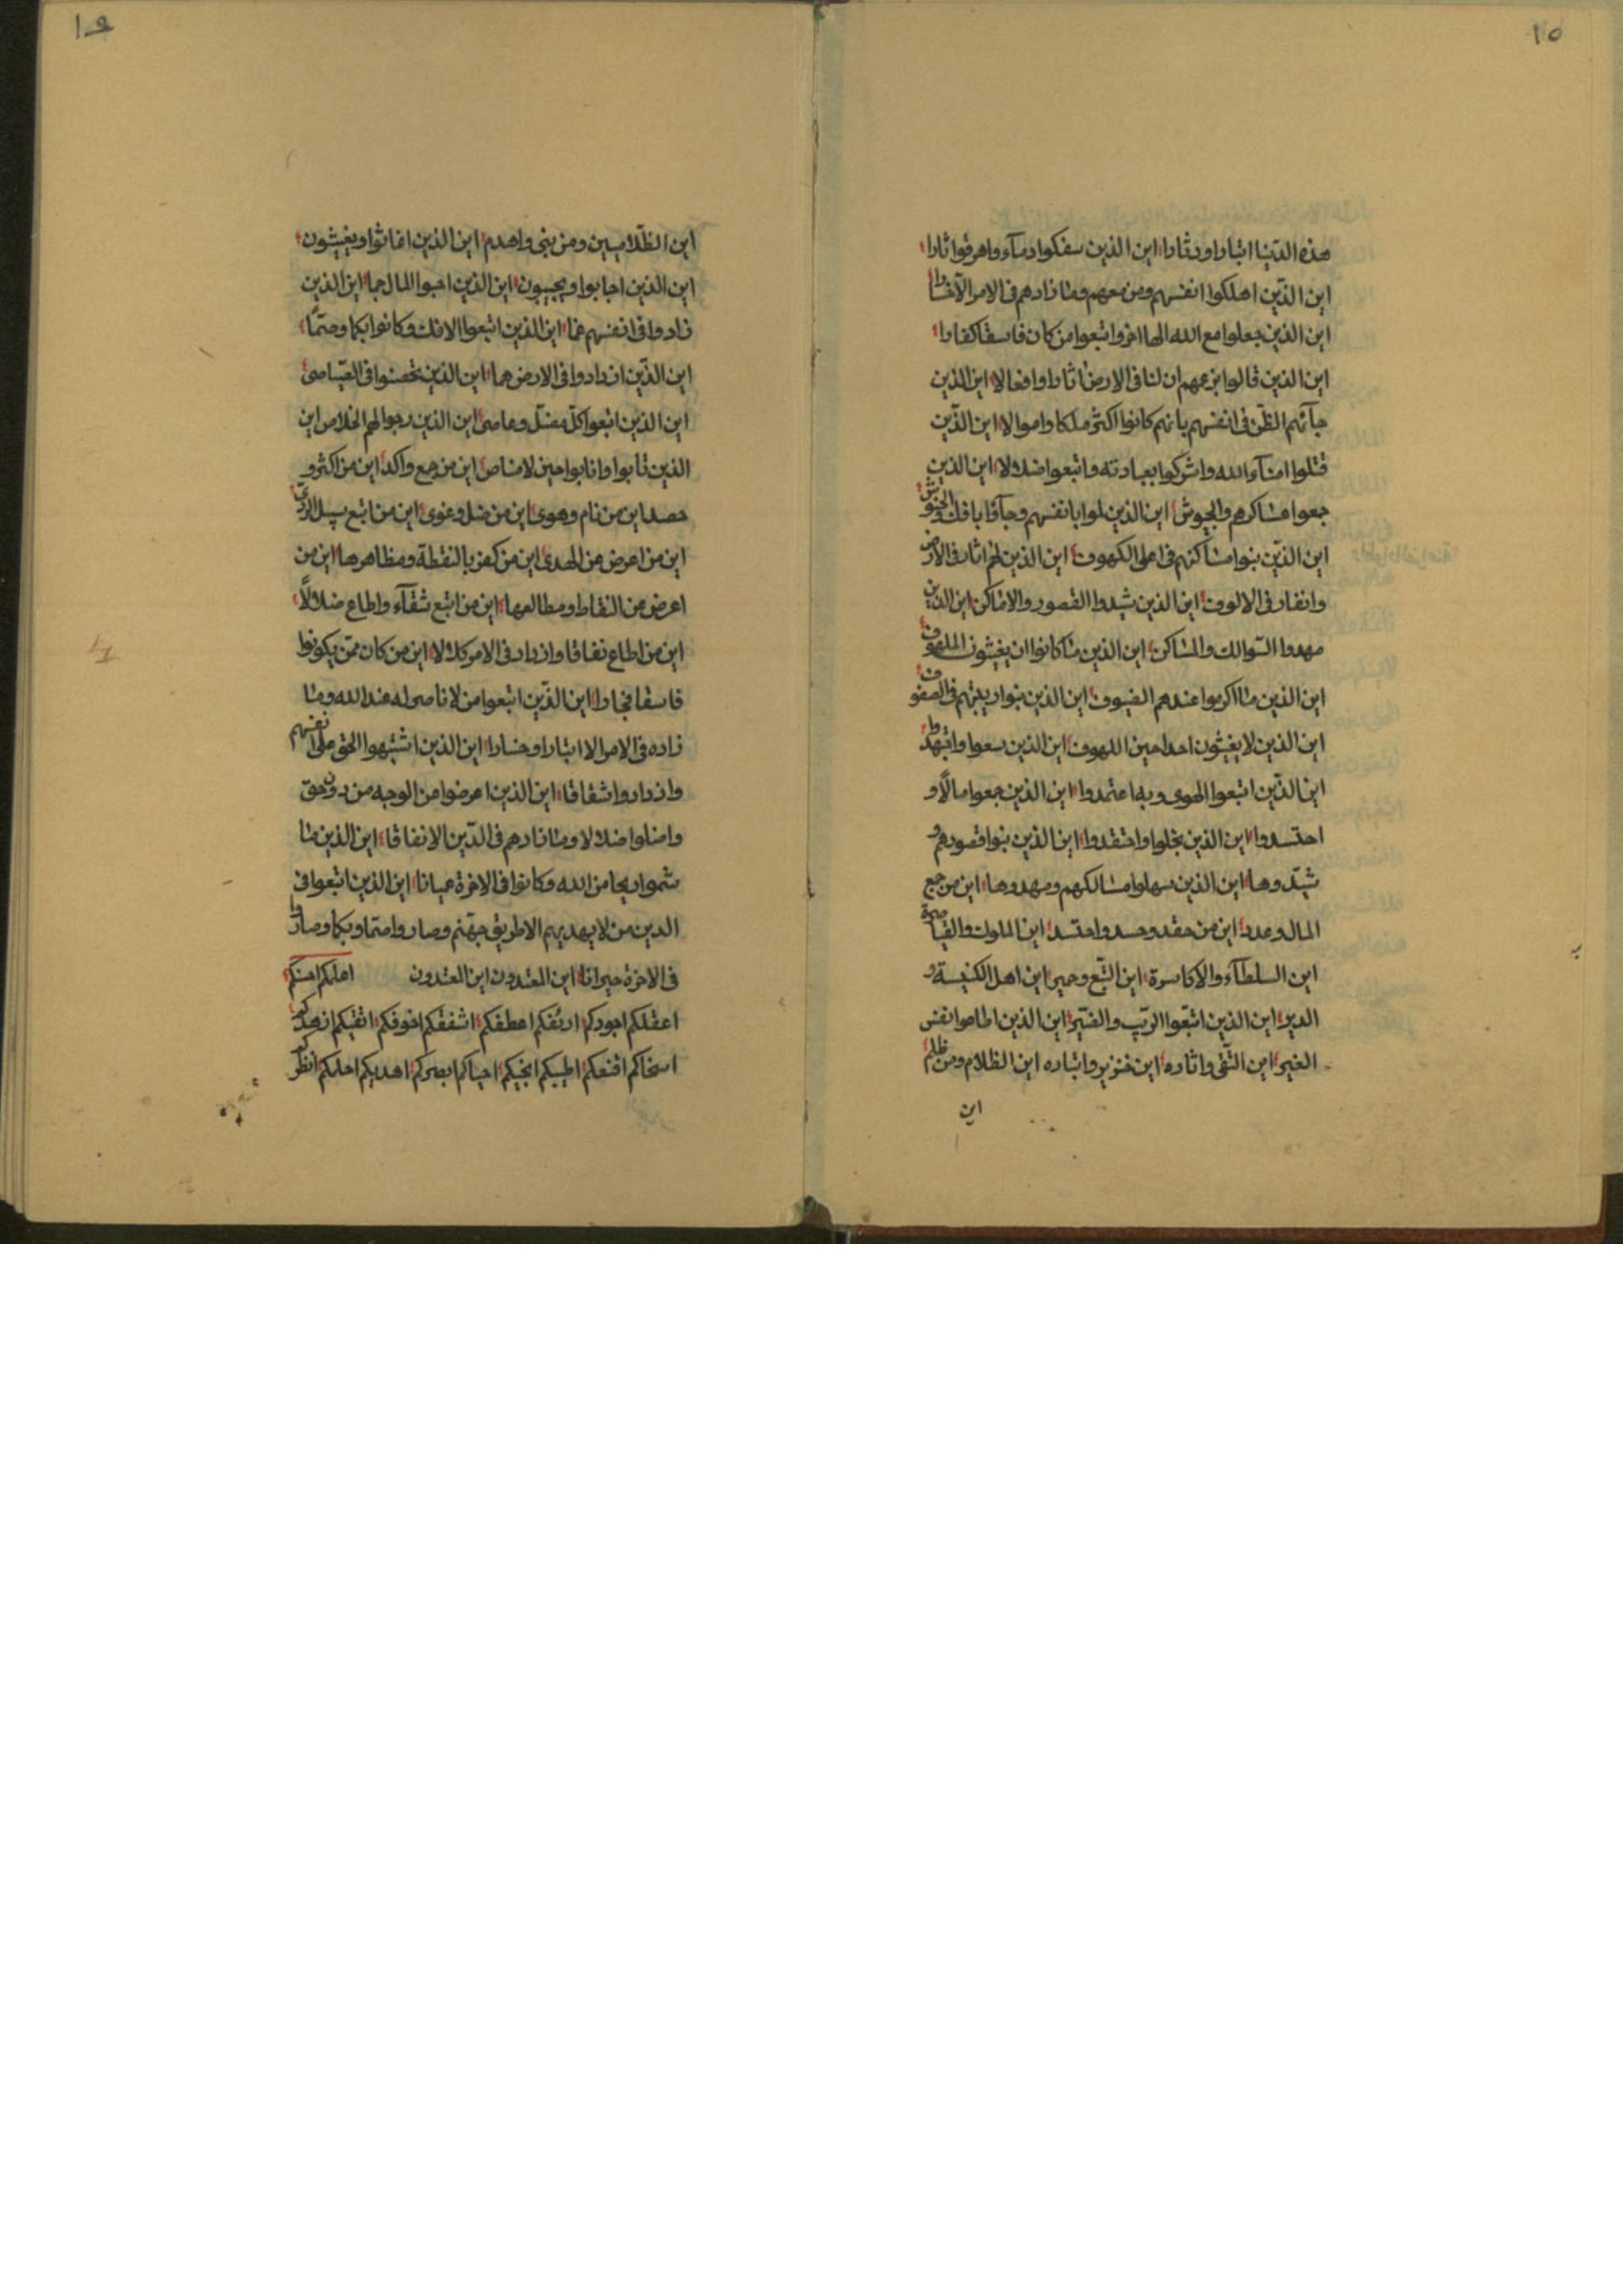 ١٥
هذه الدنيا اتبارا ودثارا اين الذين سفكوا دمآء واهرقوا ثارا
اين الذين اهلكوا انفسهم ومن معهم وما زادهم فى الامر الا خسارا
اين الذين جعلوا مع الله الها اخر واتبعوا من كان فاسقا كفارا
اين الذين قالوا بزعمهم ان لنا فى الارض اثارا وافعالا اين الذين
جآئهم الظن فى انفسهم بانهم كانوا اكثر ملكا واموالا اين الذين
قتلوا امنآء الله واشركوا بعبادته واتبعوا ضلالا اين الذين
جمعوا عساكرهم والجيوش اين الذين بانفسهم وجآؤا بافك والخنوش
اين الذين بنوا مساكنهم فى اعلى الكهوف اين الذين لهم اثار فى الارض
وانفار فى الالوف اين الذين شيدوا القصور والاماكن اين الذين
مهدوا السوالك والمساكن اين الذين ما كانوا ان يغيثون الملهوف
اين الذين ما اكرموا عندهم الضيوف اين الذين بنوا فى الصفوف
اين الذين لا يغيثون احدا حين اللهوف اين الذين سعوا واجتهدوا
اين الذين اتبعوا الهوى وبه اعتمدوا اين الذين جمعوا مالا و
احتسدوا اين الذين بخلوا واحتقدوا اين الذين بنوا قصورهم و
شيدوها اين الذين سهلوا مسالكهم ومهدوها اين من جمع
المال وعدد اين من حقد وحسد واحتسد اين الملوك والقياصرة
اين السلطآء والاكاسرة اين التبع وحمير اين اهل الكنيسة و
الدير اين الذين اتبعوا الريب والضير اين الذين اطاعوا نفس
الغير اين التقى واثاره اين خنزير واتباره اين الظلام ومن ظلم
اين
١٦
اين الظلاميين ومن بنى واهدم اين الذين اغاثوا ويغيثون
اين الذين اجابوا ويجيبون اين الذين احبوا المال جما اين الذين
زادوا فى انفسهم غما اين الذين اتبعوا الافك وكانوا بكما وصما
اين الذين ازدادوا فى الارض هما اين الذين تحصنوا فى الصياصى
اين الذين اتبعوا كل مضل وعاصى اين الذين رجوا لهم الخلاص اين
الذين تابوا وانابوا حين لا مناص اين من جمع واكد اين من اكثر و
حصد اين من نام وهوى اين من ضل وغوى اين من اتبع سبيل الردى
اين من اعرض عن الهدى اين من كفر بالنقطة ومظاهرها اين من
اعرض عن النقاط ومطالعها اين من اتبع شقآء واطاع ضلالا
اين من اطاع نفاقا وازداد فى الامر كلالا اين من كان ممن يكونوا
فاسقا فجارا اين الذين اتبعوا من لا ناصر له عند الله وما
زاده فى الامر الا اتبارا وخسارا اين الذين اشتبهوا الحق على انفسهم
وازدادوا شقاقا اين الذين اعرضوا عن الوجه من دون حق
واضلوا ضلالا وما زادهم فى الدين الا نفاقا اين الذين ما
شموا ريحا من الله وكانوا فى الاخرة عميانا اين الذين اتبعوا فى
الدين من لا يهديهم الا طريق جهنم وصاروا صما وبكما وصاروا
فى الاخرة حيرانا اين المعتدون اين المعتدون اعلمكم احسنكم
اعقلكم اجودكم ارئفكم اعطفكم اشفقكم اخوفكم اتقيكم ازهدكم
اسخاكم اقنعكم اطيبكم انجيكم احياكم ابصركم اهديكم احلمكم انظركم